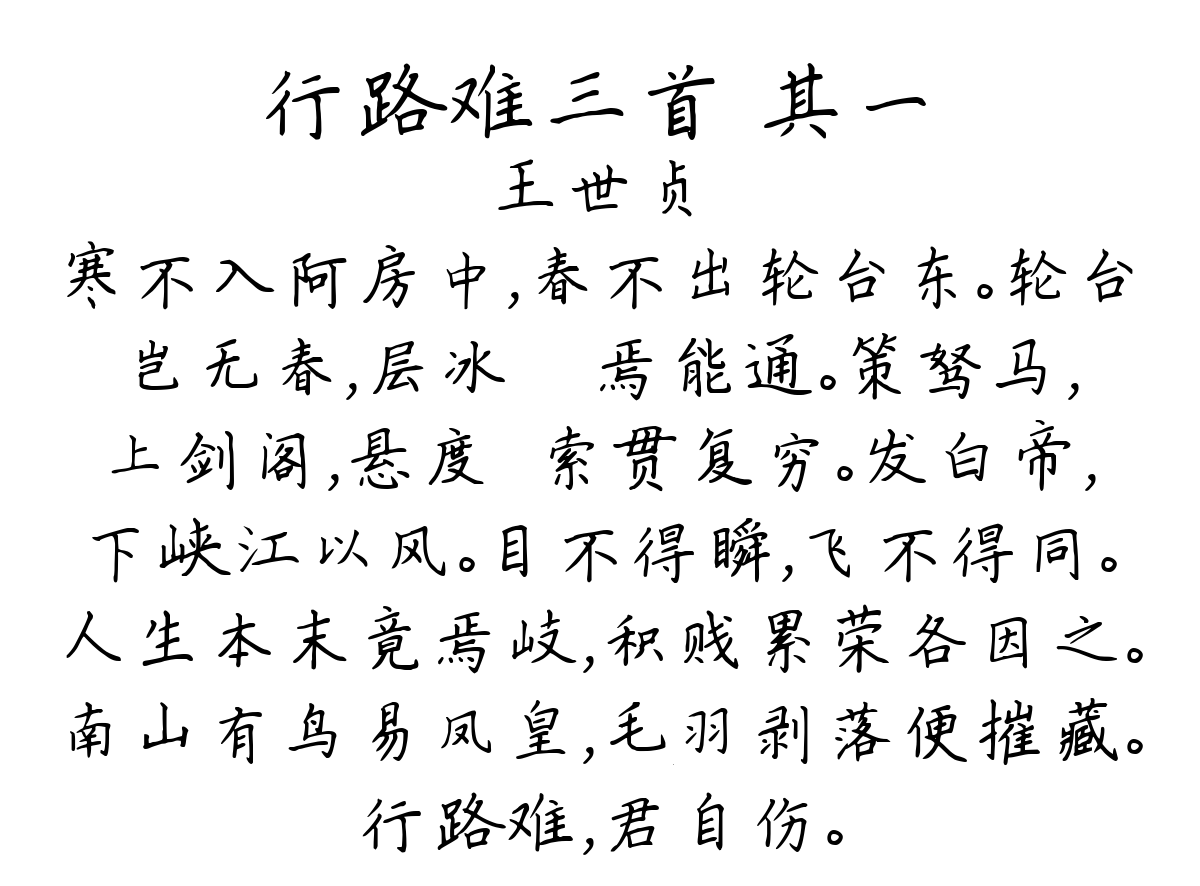 行路难三首 其一
王世贞
寒不入阿房中,春不出轮台东。轮台
岂无春,层冰 焉能通。策驽马,
上剑阁,悬度 索贯复穷。发白帝,
下峡江以风。目不得瞬,飞不得同。
人生本末竟焉岐,积贱累荣各因之。
南山有鸟易凤皇,毛羽剥落便摧藏。
行路难,君自伤。